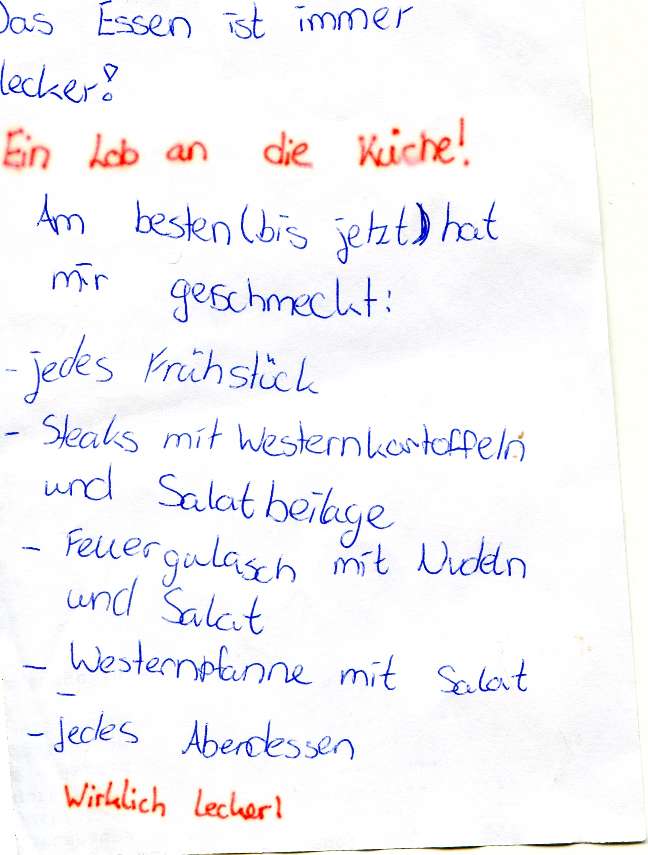 Das Essen ist immer
lecker!
Ein Lob an die Küche!
Am besten (bis jetzt) hat
mir geschmeckt:
- jedes Frühstück
- Steaks mit Westernkartoffeln
und Salatbeilage
- Feuergulasch mit Nudeln
und Salat
- Westernpfanne mit Salat
- jedes Abendessen
Wirklich lecker!